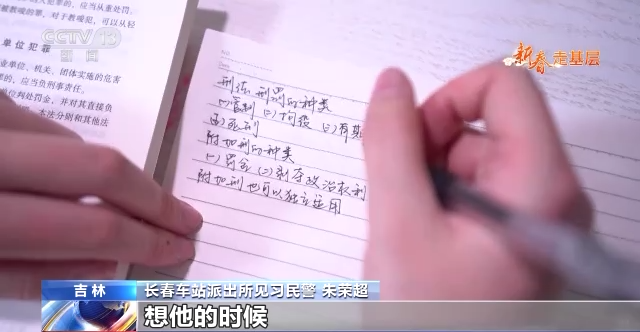 CCTV 13
新闻
新春走基层
犯罪的，应当从重处罚。
被教唆的罪，对于教唆犯，可以从轻
单位犯罪
业单位、机关、团体实施的危害
罪的，应当负刑事责任。
判处罚金，并对其直接负
本法分则和其他法
刑法 刑罚的种类
(一)管制 (二)拘役 (三)有期
死刑
附加刑的种类
(一)罚金 (二)剥夺政治权利
附加刑也可以独立适用
吉林
长春车站派出所见习民警 朱荣超
想他的时候